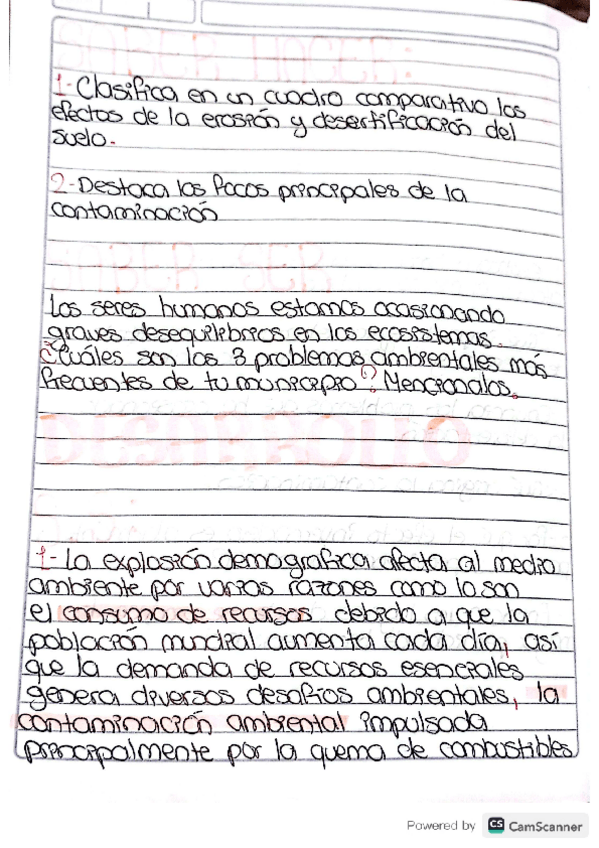 SABER HACER:
1-Clasifica en un cuadro comparativo los
efectos de la erosión y desertificación del
suelo.
2-Destaca los focos principales de la
contaminación
SABER SER
Los seres humanos estamos ocasionando
graves desequilibrios en los ecosistemas.
¿Cuáles son los 3 problemas ambientales más
frecuentes de tu municipio? Mencionalos.
DESARROLLO
1-La explosión demografica afecta al medio
ambiente por varias razones como lo son
el consumo de recursos debido a que la
población mundial aumenta cada día, así
que la demanda de recursos esenciales
genera diversos desafíos ambientales, la
contaminación ambiental impulsada
principalmente por la quema de combustibles
Powered by CS CamScanner